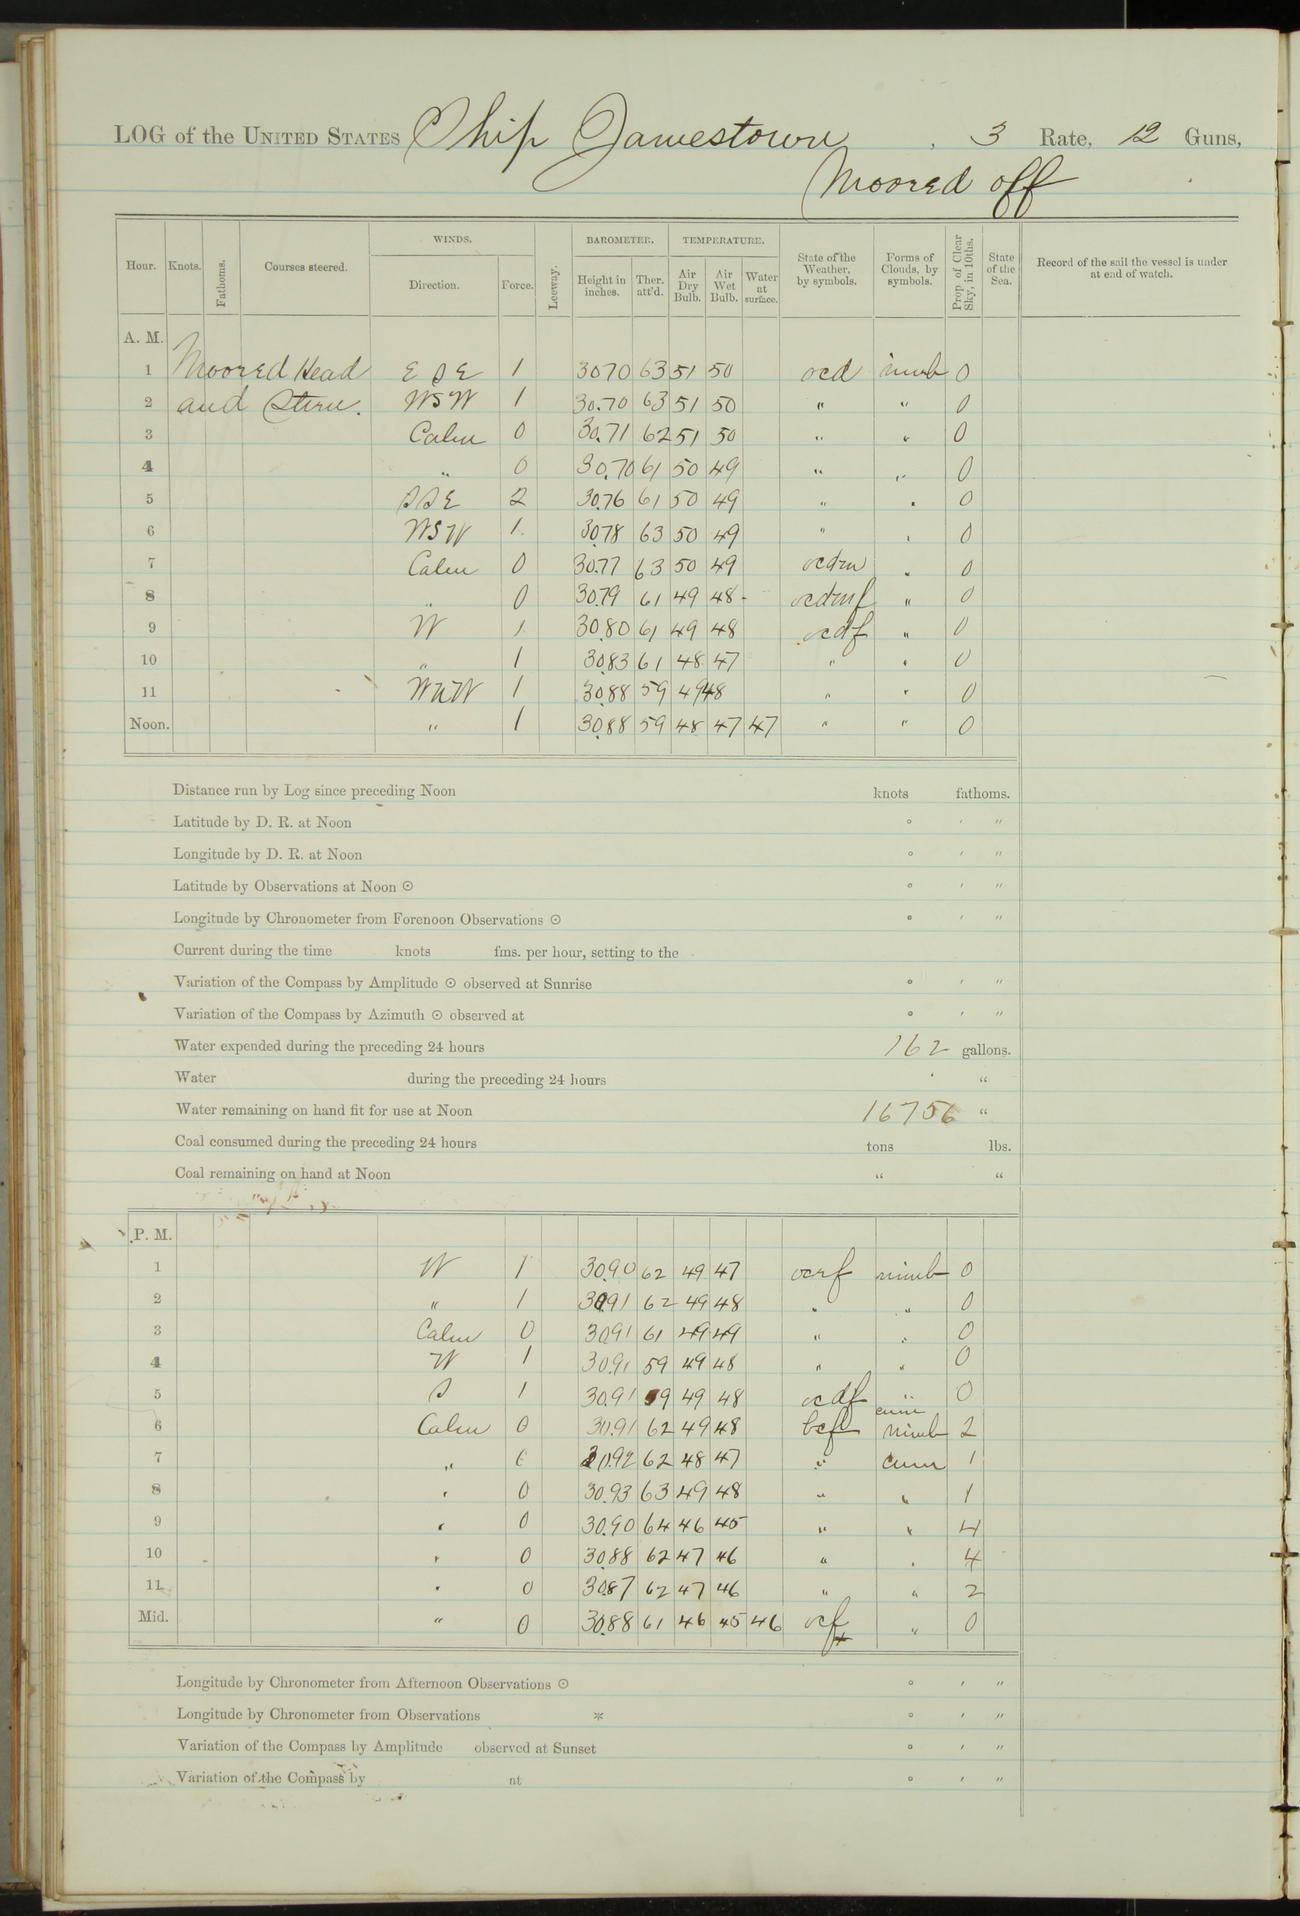 LOG of the UNITED STATES Ship Jamestown, 3 Rate, 12 Guns,
Moored off
Hour. Knots. Fathoms. Courses steered. WINDS. Direction. Force. Leeway. BAROMETER. Height in inches. Ther. att'd. TEMPERATURE. Air Dry Bulb. Air Wet Bulb. Water at surface. State of the Weather, by symbols. Forms of Clouds, by symbols. Prop. of Clear Sky, in 10ths. State of the Sea. Record of the sail the vessel is under at end of watch.
A. M.
1 Moored Head E S E 1 30.70 63 51 50 ocd nimb 0
2 and Stern. WSW 1 30.70 63 51 50 " " 0
3 Calm 0 30.71 62 51 50 " " 0
4 " 0 30.70 61 50 49 " " 0
5 S S E 2 30.76 61 50 49 " " 0
6 WSW 1 30.78 63 50 49 " " 0
7 Calm 0 30.77 63 50 49 ocdm " 0
8 " 0 30.79 61 49 48 ocdmf " 0
9 W 1 30.80 61 49 48 ocdf " 0
10 " 1 30.83 61 48 47 " " 0
11 WNW 1 30.88 59 49 48 " " 0
Noon. " 1 30.88 59 48 47 47 " " 0
Distance run by Log since preceding Noon knots fathoms.
Latitude by D. R. at Noon ° ′ ″
Longitude by D. R. at Noon ° ′ ″
Latitude by Observations at Noon ☉ ° ′ ″
Longitude by Chronometer from Forenoon Observations ☉ ° ′ ″
Current during the time knots fms. per hour, setting to the
Variation of the Compass by Amplitude ☉ observed at Sunrise ° ′ ″
Variation of the Compass by Azimuth ☉ observed at ° ′ ″
Water expended during the preceding 24 hours 162 gallons.
Water during the preceding 24 hours "
Water remaining on hand fit for use at Noon 16756 "
Coal consumed during the preceding 24 hours tons lbs.
Coal remaining on hand at Noon " "
P. M.
1 W 1 30.90 62 49 47 ocrf nimb 0
2 " 1 30.91 62 49 48 " " 0
3 Calm 0 30.91 61 49 49 " " 0
4 W 1 30.91 59 49 48 " " 0
5 S 1 30.91 59 49 48 ocdf " 0
6 Calm 0 30.91 62 49 48 bcf cum nimb 2
7 " 0 30.92 62 48 47 " cum 1
8 " 0 30.93 63 49 48 " " 1
9 " 0 30.90 64 46 45 " " 4
10 " 0 30.88 62 47 46 " " 4
11 " 0 30.87 62 47 46 " " 2
Mid. " 0 30.88 61 46 45 46 ocf " 0
Longitude by Chronometer from Afternoon Observations ☉ ° ′ ″
Longitude by Chronometer from Observations * ° ′ ″
Variation of the Compass by Amplitude observed at Sunset ° ′ ″
Variation of the Compass by at ° ′ ″